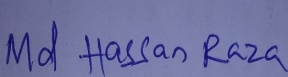 Md Hassan Raza